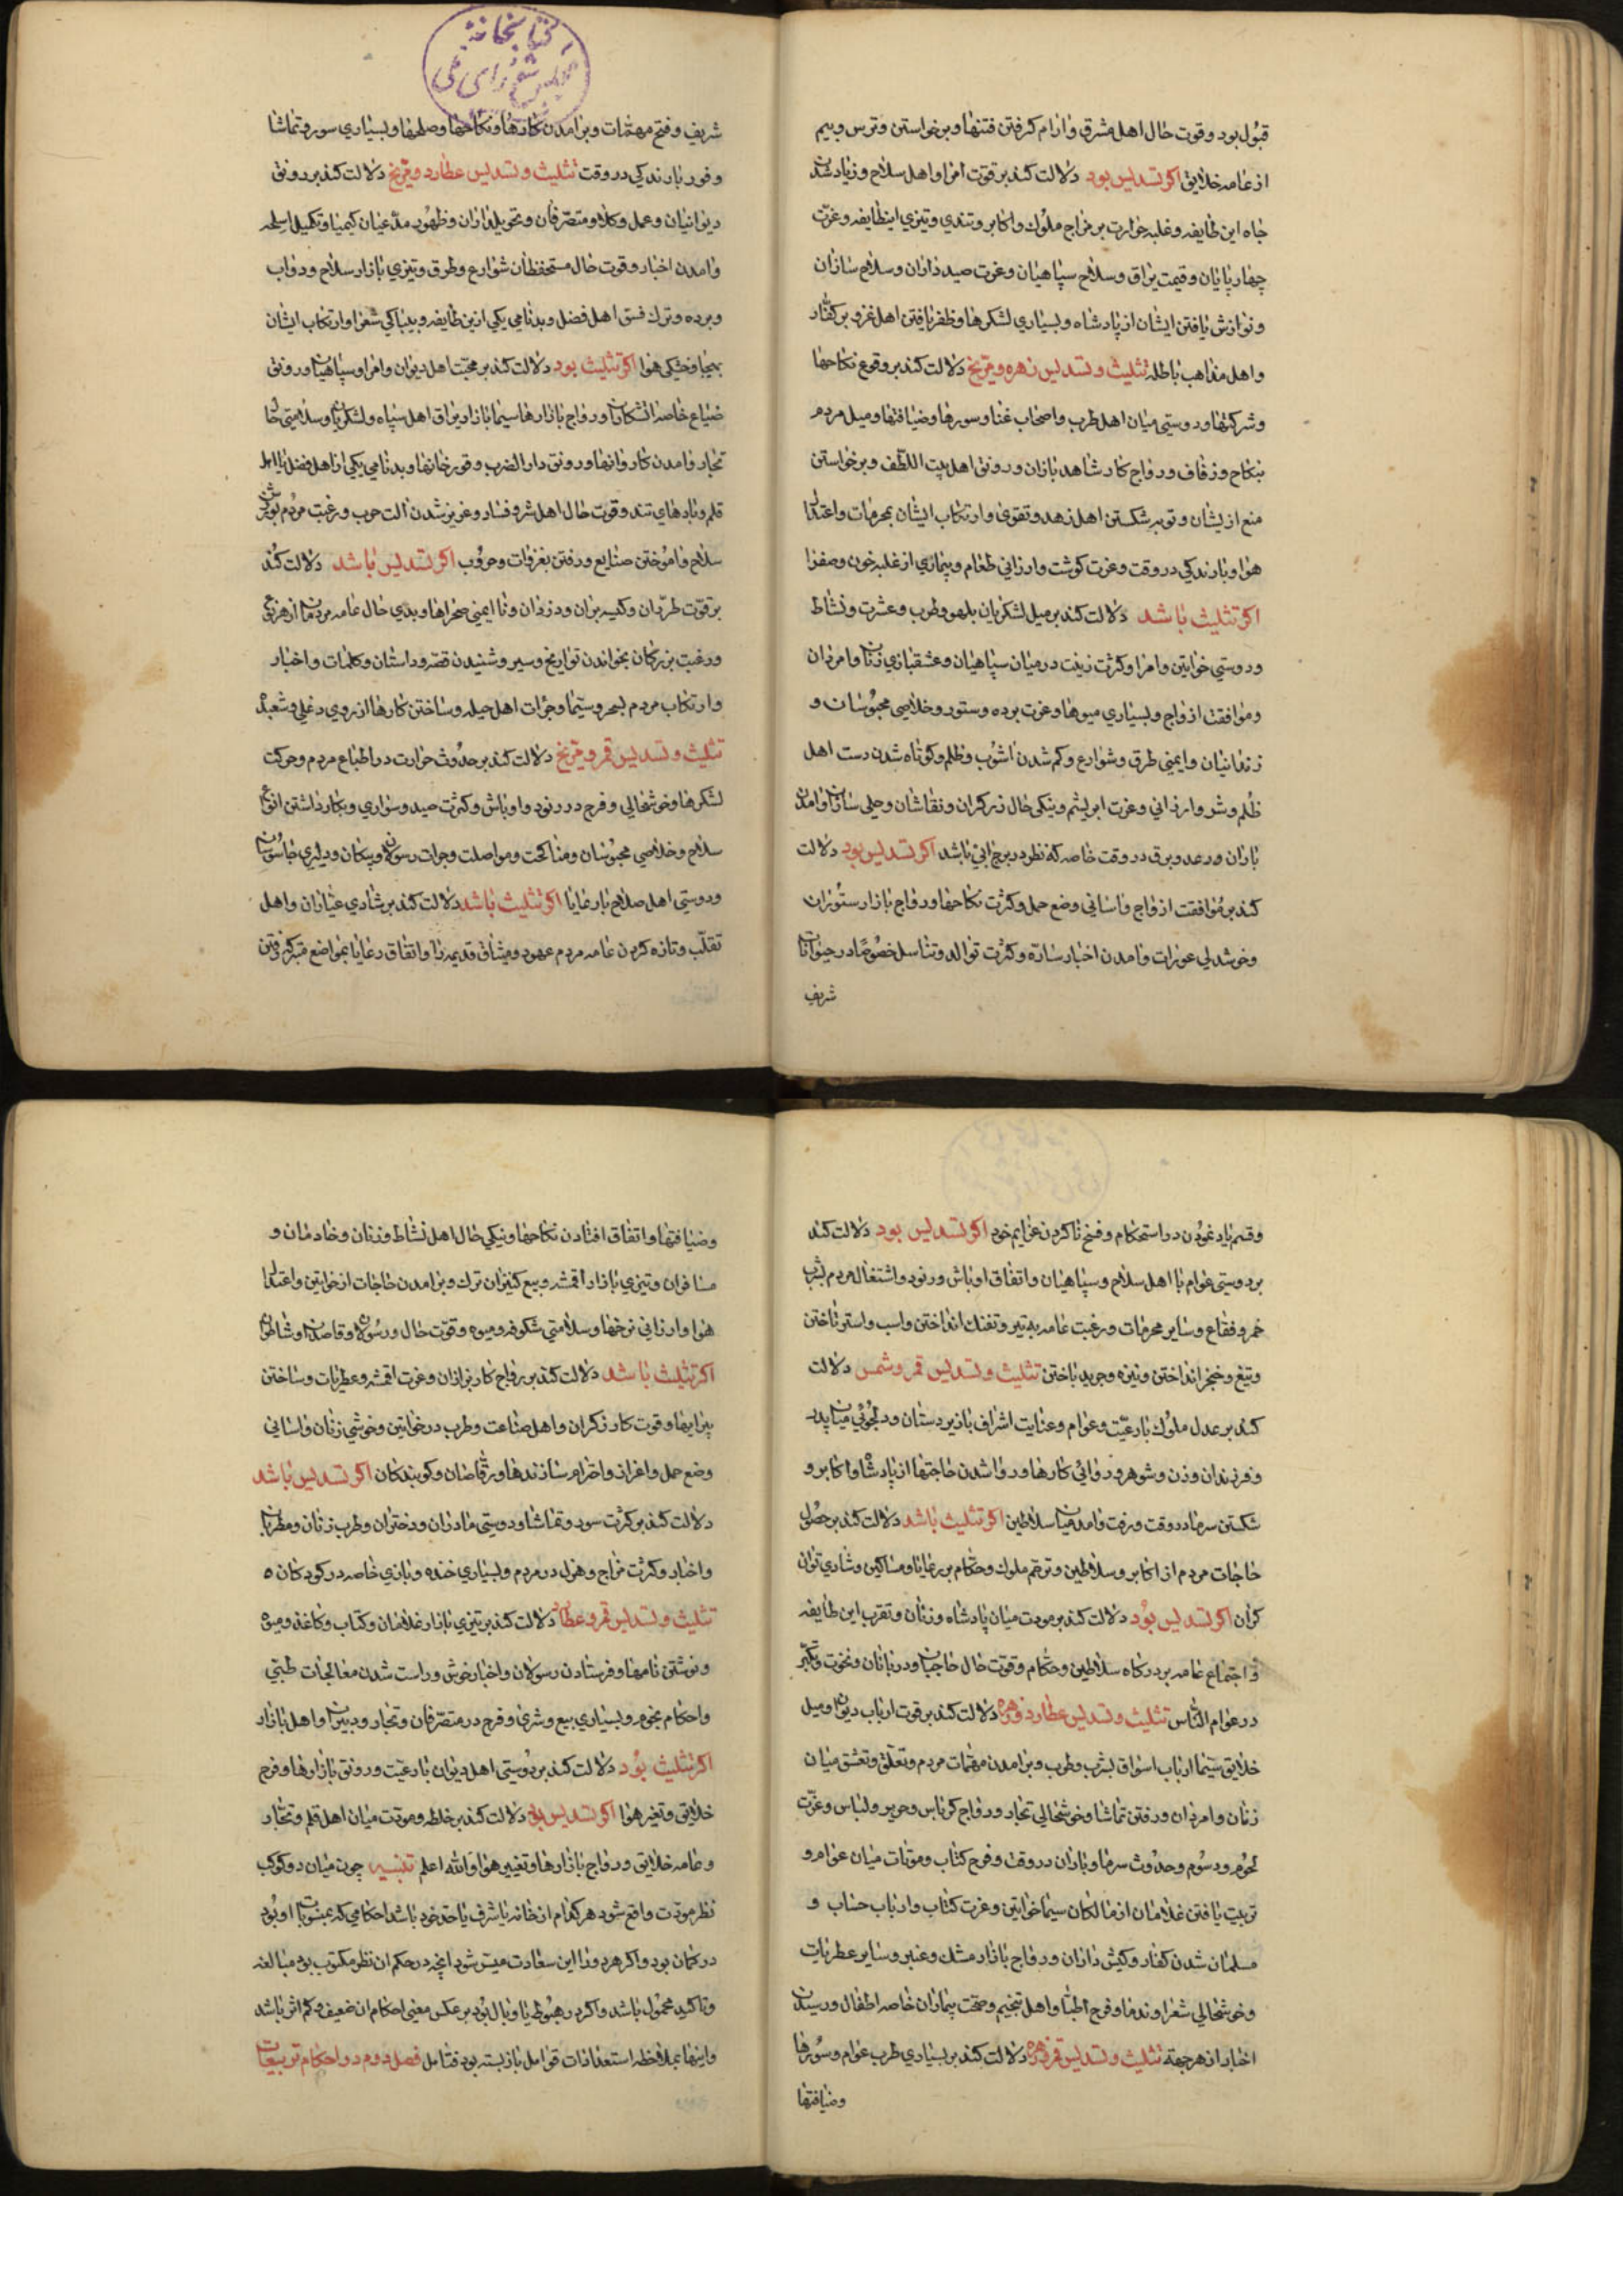 قبول بود و قوت حال اهل مشرق و آرام گرفتن فتنها و برخواستن و ترس و بیم
از عامه خلایق اگر تسدیس بود دلالت کند بر قوت امرا و اهل سلاح و زیاد شدن
جاه این طایفه و غلبه حرارت بر مزاج ملوک و اکابر و تندی و تیزی اینطایفه و عزت
چهارپایان و قیمت یراق و سلاح سپاهیان و عزت صیدداران و سلاح سازان
و نوازش یافتن ایشان از پادشاه و بسیاری لشکرها و ظفر یافتن اهل غزو بر کفار
و اهل مذاهب باطله تثلیث و تسدیس زهره و مریخ دلالت کند بر وقوع نکاحها
و شرکتها و دوستی میان اهل طرب و اصحاب غنا و سورها و ضیافتها و میل مردم
بنکاح و زفاف و رواج کار شاهدبازان و رونق اهل بیت اللطف و برخواستن
منع از یشان و توبه شکستن اهل زهد و تقوی و ارتکاب ایشان بمحرمات و اعتدال
هوا و بارندکی در وقت و عزت کوشت و ارزانی طعام و بیماری از غلبه خون و صفرا
اگر تثلیث باشد دلالت کند بر میل لشکریان بلهو و طرب و عشرت و نشاط
و دوستی خواتین و امرا و کثرت زینت در میان سپاهیان و عشقبازی زنان و امردان
و موافقت ازواج و بسیاری میوها و عزت برده و ستور و خلاصی محبوسان و
زندانیان و ایمنی طرق و شوارع و کم شدن اشوب و ظلم و کوتاه شدن دست اهل
ظلم و شر و ارزانی و عزت ابریشم و نیکی حال زرکران و نقاشان و حلی سازان و امدن
باران و رعد و برق در وقت خاصه که نظر در برج ابی باشد اگر تسدیس بود دلالت
کند بر موافقت ازواج و اسانی وضع حمل و کثرت نکاحها و رواج بازار ستوران
و خوشدلی عورات و امدن اخبار ساره و کثرت توالد و تناسل خصوصا در حیوانات
شریف
کتابخانه
مجلس شورای ملی
شریف و فتح مهمات و برامدن کارها و نکاحها و صلحها و بسیاری سور و تماشا
و فور بارندکی در وقت تثلیث و تسدیس عطارد و مریخ دلالت کند بر رونق
دیوانیان و عمل وکلا و متصرفان و تحویلداران و ظهور مدعیان کیمیا و تکمیل اسلحه
و امدن اخبار و قوت حال مستحفظان شوارع و طرق و تیزی بازار سلاح و دواب
و برده و ترک فسق اهل فضل و بدنامی یکی ازین طایفه و بیباکی شعرا و ارتکاب ایشان
بهجا و خشکی هوا اگر تثلیث بود دلالت کند بر محبت اهل دیوان و امرا و سپاهیان و رونق
ضیاع خاصه و رواج بازارها سیما بازار یراق اهل سپاه و لشکریان و سلامتی حال
تجار و امدن کاروانها و رونق دار الضرب و قورخانها و بدنامی یکی از اهل فضل یا اهل
قلم و بادهای تند و قوت حال اهل شر و فساد و عزیز شدن الت حرب و رغبت مردم بورزش
سلاح و اموختن صنایع و رفتن بغزوات و حروب اگر تسدیس باشد دلالت کند
بر قوت طرّران و کیسه بران و دزدان و نا ایمنی صحراها و بدی حال عامه مردمان از هرنوع
و رغبت بزرکان بخواندن تواریخ و سیر و شنیدن قصه و داستان و کلمات و اخبار
و ارتکاب مردم بسحر و سیمیا و جرات اهل حیله و ساختن کارها از روی دغلی و شعبده
تثلیث و تسدیس قمر و مریخ دلالت کند بر حدوث حرارت در اطباع مردم و حرکت
لشکرها و خوشحالی و فرح در رنود و اوباش و کثرت صید و سواری و بکار داشتن انواع
سلاح و خلاصی محبوسان و مناکحت و مواصلت و جرات رسولان و پیکان و دلیری جاسوسان
و دوستی اهل صلاح با رعایا اگر تثلیث باشد دلالت کند بر شادی عیاران و اهل
تقلب و تازه کردن عامه مردم عهود و میثاق قدیمه را و اتفاق رعایا بمواضع متبرکه رفتن
و قسم یاد نمودن در استحکام و فسخ ناکردن عزایم خود اگر تسدیس بود دلالت کند
بر دوستی عوام با اهل سلاح و سپاهیان و اتفاق اوباش و رنود و اشتغال مردم بشرب
خمر و فقاع و سایر محرمات و رغبت عامه بتیر و تفنک انداختن و اسب و استر تاختن
و تیغ و خنجر انداختن و نیزه و جرید باختن تثلیث و تسدیس قمر و شمس دلالت
کند بر عدل ملوک با رعیت و عوام و عنایت اشراف با زیردستان و دلجوئی میان پدر
و فرزندان و زن و شوهر و روائی کارها و روا شدن حاجتها از پادشاه و اکابر و
شکستن سرما در وقت و رفت و امد میان سلاطین اگر تثلیث باشد دلالت کند بر حصول
حاجات مردم از اکابر و سلاطین و ترحم ملوک و حکام بر رعایا و مساکین و شادی توان
کران اگر تسدیس بود دلالت کند بر مودت میان پادشاه و زنان و تقرب این طایفه
و اجتماع عامه بردرگاه سلاطین و حکام و قوت حال حاجبان و دربانان و نخوت و تکبر
در عوام الناس تثلیث و تسدیس عطارد و زهره دلالت کند بر قوت ارباب دیوان و میل
خلایق سیما ارباب اسواق بشرب و طرب و برامدن مهمات مردم و تعلق و تعشق میان
زنان و امردان و رفتن تماشا و خوشحالی تجار و رواج کرباس و حریر و لباس و عزت
لحوم و دسوم و حدوث سرما و باران در وقت و فرح کتاب و مودات میان عوام و
تربیت یافتن غلامان از مالکان سیما خواتین و عزت کتاب و ارباب حساب و
مسلمان شدن کفار و کیش داران و رواج بازار مشک و عنبر و سایر عطریات
و خوشحالی شعرا و ندما و فرح اطبا و اهل تنجیم و صحت بیماران خاصه اطفال و رسیدن
اخبار از هر جهة تثلیث و تسدیس قمر و زهره دلالت کند بر بسیاری طرب عوام و سورها
و ضیافتها
و ضیافتها و اتفاق افتادن نکاحها و نیکی حال اهل نشاط و زنان و خادمان و
مسافران و تیزی بازار اقمشه و بیع کنیزان ترک و برامدن حاجات از خواتین و اعتدال
هوا و ارزانی نرخها و سلامتی شکوفه و میوه و قوت حال و رسولان و قاصدان و شاطران
اگر تثلیث باشد دلالت کند بر رواج کار بزازان و عزت اقمشه و عطریات و ساختن
پیرایها و قوت کار زرکران و اهل صناعت و طرب در خواتین و خوشی زنان و اسانی
وضع حمل و اعزاز و احترام سازندها و رقاصان و کویندکان اگر تسدیس باشد
دلالت کند بر کثرت سور و تماشا و دوستی مادران و دختران و طرب زنان و مطربان
و اخبار و کثرت مزاح و هزل در مردم و بسیاری خنده و بازی خاصه در کودکان ه
تثلیث و تسدیس قمر و عطارد دلالت کند بر تیزی بازار غلامان و کتاب و کاغذ و میوه
و نوشتن نامها و فرستادن رسولان و اخبار خوش و راست شدن معالجات طبی
و احکام نجوم و بسیاری بیع و شری و فرح در متصرفان و تجار و دبیران و اهل بازار
اگر تثلیث بود دلالت کند بر دوستی اهل دیوان با رعیت و رونق بازارها و فرح
خلایق و تغیر هوا اگر تسدیس بود دلالت کند بر خلطه و مودت میان اهل قلم و تجار
و عامه خلایق و رواج بازارها و تغییر هوا والله اعلم تنبیه چون میان دو کوکب
نظر مودت واقع شود هر کدام از خانه یا شرف یا حد خود باشد احکامی که بمنسوبات او بود
در کمان بود و اگر هر دو را این سعادت میسر شود انچه در حکم ان نظر مکتوب بود مبالغه
و تاکید محمول باشد و اگر در هبوط یا وبال بود بر عکس معنی احکام ان ضعیف و کم اثر باشد
و اینها بملاحظه استعدادات قوابل باز بسته بود فتامل فصل دوم در احکام تربیعات